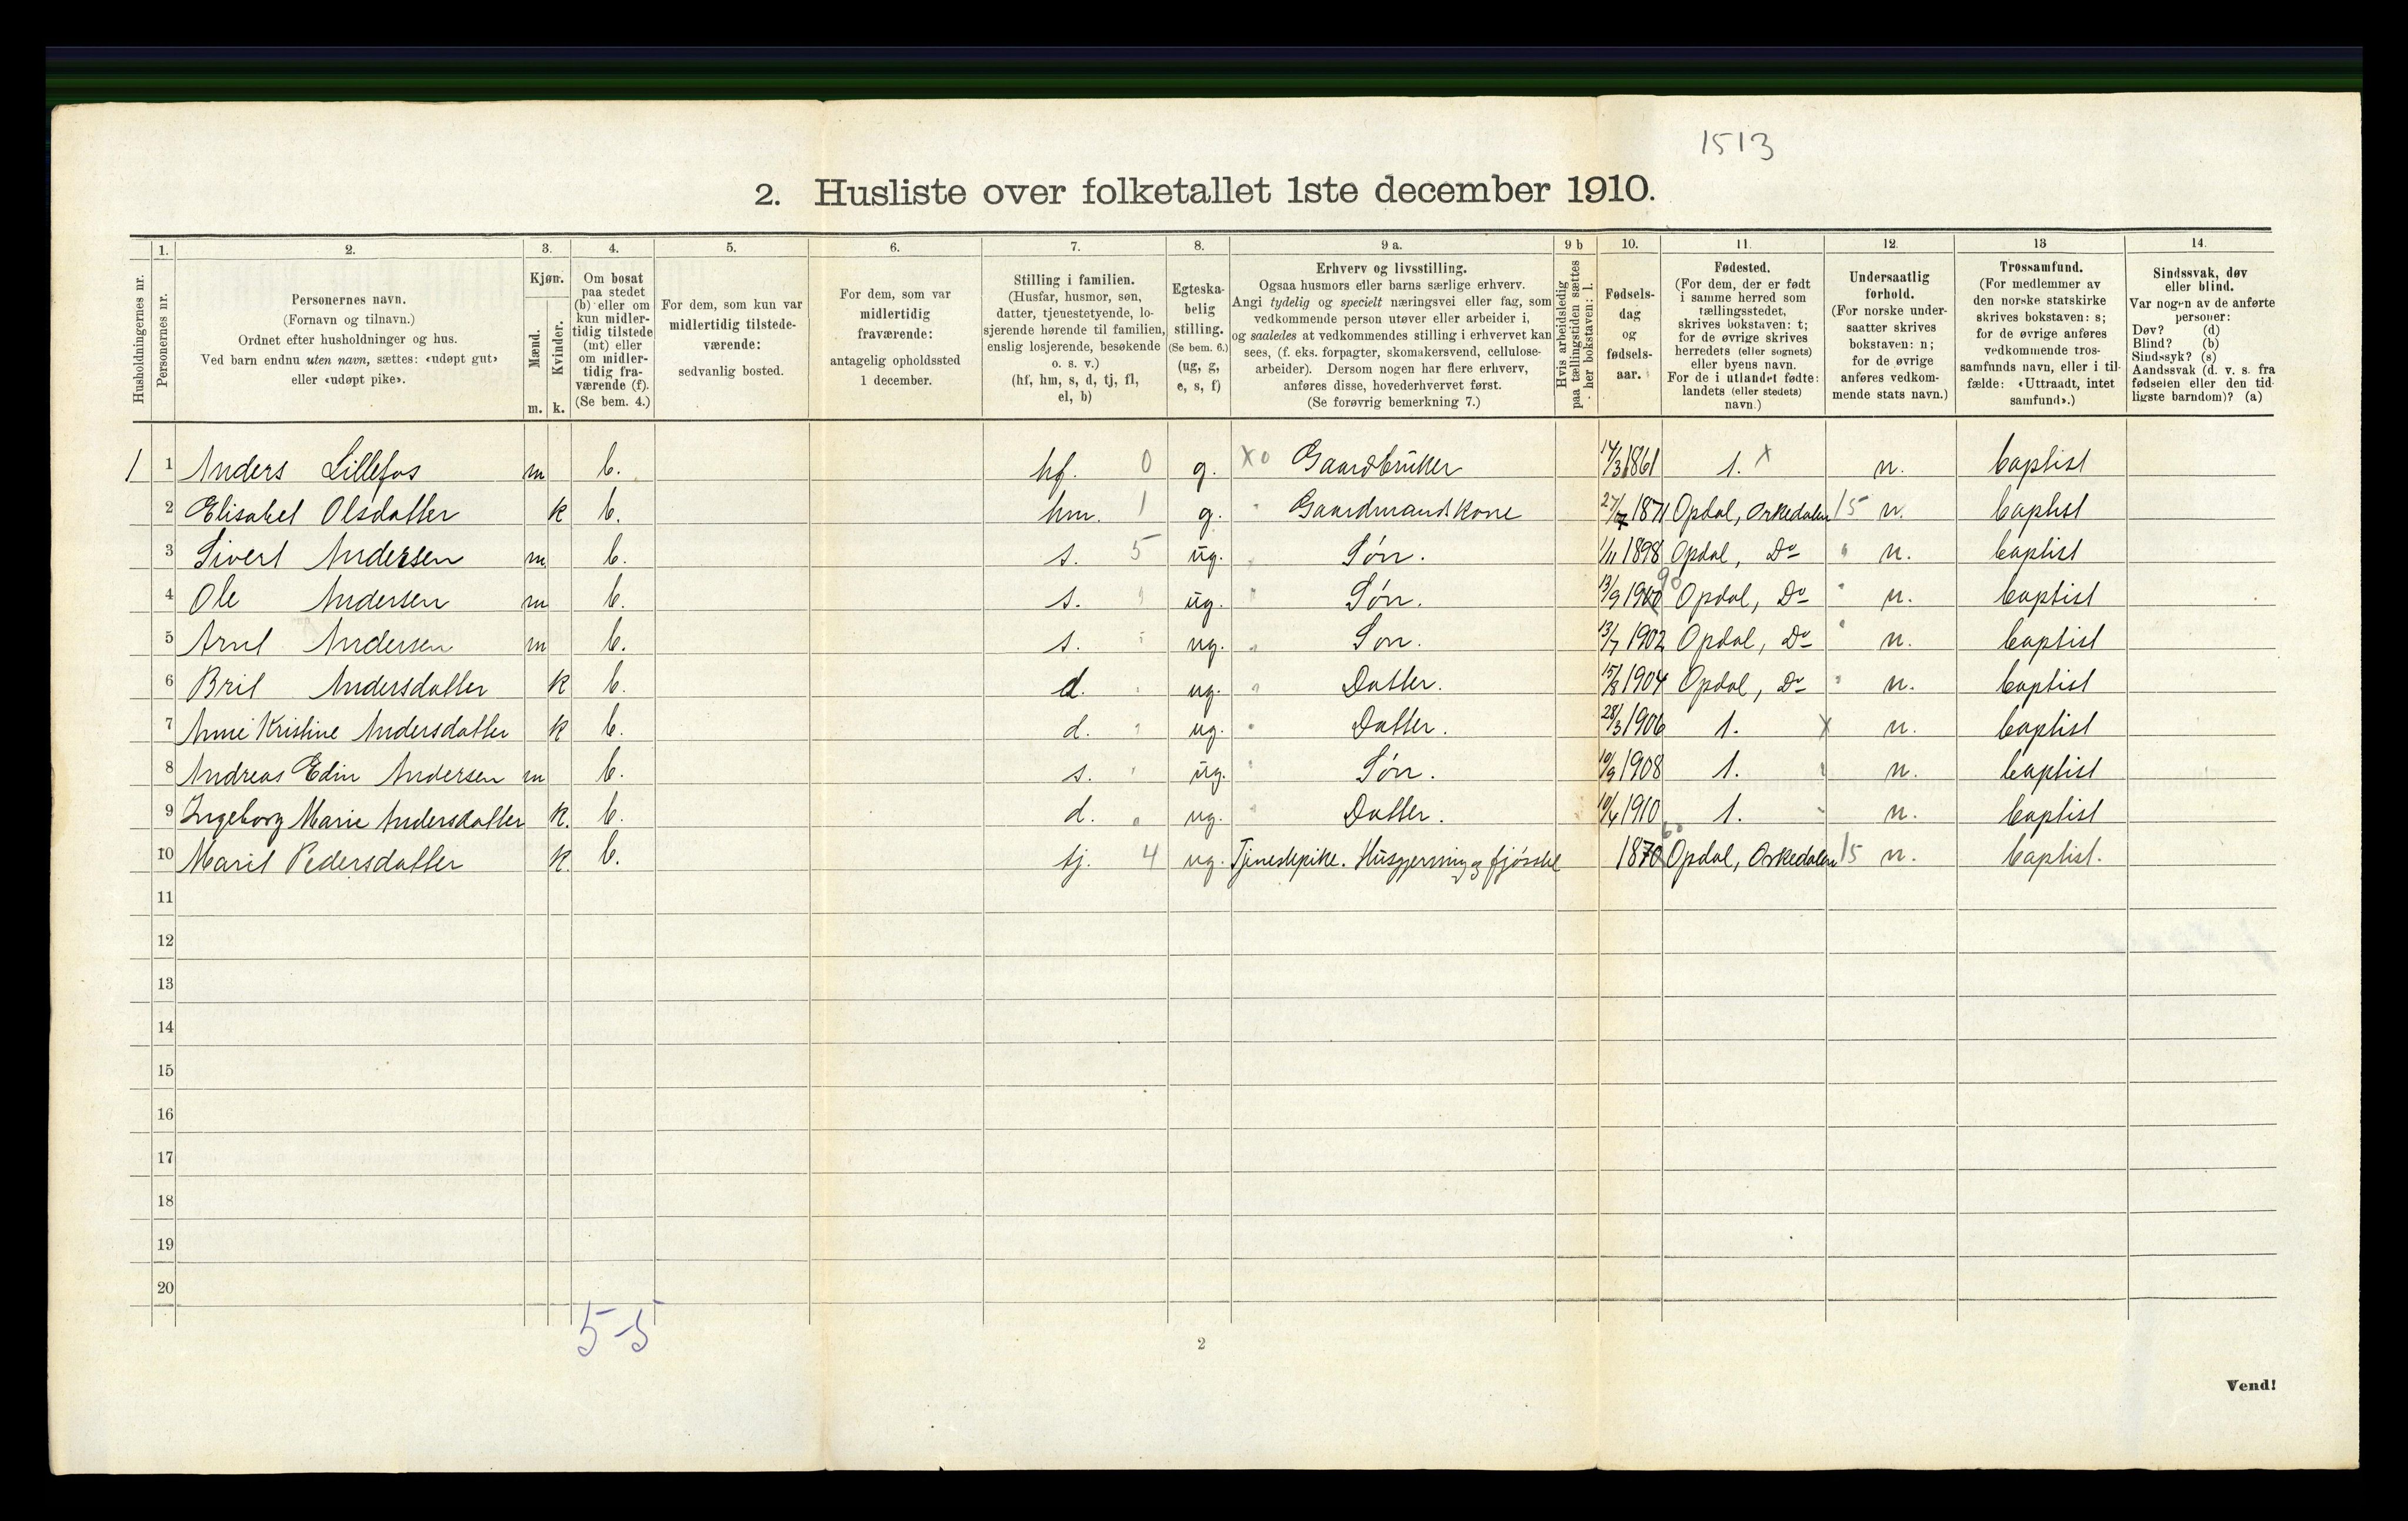 1513
2. Husliste over folketallet 1ste december 1910.
Husholdningernes nr.
1.
Personernes nr.
2.
Personernes navn.
(Fornavn og tilnavn.)
Ordnet efter husholdninger og hus.
Ved barn endnu uten navn, sættes: «udøpt gut»
eller «udøpt pike».
3.
Kjøn.
Mænd.
Kvinder.
m. k.
4.
Om bosat
paa stedet
(b) eller om
kun midler-
tidig tilstede
(mt) eller
om midler-
tidig fra-
værende (f).
(Se bem. 4.)
5.
For dem, som kun var
midlertidig tilstede-
værende:
sedvanlig bosted.
6.
For dem, som var
midlertidig
fraværende:
antagelig opholdssted
1 december.
7.
Stilling i familien.
(Husfar, husmor, søn,
datter, tjenestetyende, lo-
sjerende hørende til familien,
enslig losjerende, besøkende
o. s. v.)
(hf, hm, s, d, tj, fl,
el, b)
8.
Egteska-
belig
stilling.
(Se bem. 6.)
(ug, g,
e, s, f)
9 a.
Erhverv og livsstilling.
Ogsaa husmors eller barns særlige erhverv.
Angi tydelig og specielt næringsvei eller fag, som
vedkommende person utøver eller arbeider i,
og saaledes at vedkommendes stilling i erhvervet kan
sees, (f. eks. forpagter, skomakersvend, cellulose-
arbeider). Dersom nogen har flere erhverv,
anføres disse, hovederhvervet først.
(Se forøvrig bemerkning 7.)
9 b
Hvis arbeidsledig
paa tællingstiden sættes
her bokstaven: l.
10.
Fødsels-
dag
og
fødsels-
aar.
11.
Fødested.
(For dem, der er født
i samme herred som
tællingsstedet,
skrives bokstaven: t;
for de øvrige skrives
herredets (eller sognets)
eller byens navn.
For de i utlandet fødte:
landets (eller stedets)
navn.)
12.
Undersaatlig
forhold.
(For norske under-
saatter skrives
bokstaven: n;
for de øvrige
anføres vedkom-
mende stats navn.)
13
Trossamfund.
(For medlemmer av
den norske statskirke
skrives bokstaven: s;
for de øvrige anføres
vedkommende tros-
samfunds navn, eller i til-
fælde: «Uttraadt, intet
samfund».)
14.
Sindssvak, døv
eller blind.
Var nogen av de anførte
personer:
Døv? (d)
Blind? (b)
Sindssyk? (s)
Aandssvak (d. v. s. fra
fødselen eller den tid-
ligste barndom)? (a)
1 1 Anders Lillefos m b. hf. 0 g. X0 Gaardbruker 14/3 1861 t. x n. baptist
2 Elisabet Olsdatter k b. hm. 1 g. " Gaardmandskone 27/7 1871 Opdal, Orkedalen 15 n. baptist
3 Sivert Andersen m b. s. 5 ug. " Søn. 1/11 1898 Opdal, Do " n. baptist
4 Ole Andersen m b. s. " ug. " Søn. 13/9 1900 90 Opdal, Do " n. baptist
5 Arnt Andersen m b. s. " ug. " Søn. 13/7 1902 Opdal, Do " n. baptist
6 Brit Andersdatter k b. d. " ug. " Datter. 15/8 1904 Opdal, Do " n. baptist
7 Anne Kristine Andersdatter k b. d. " ug. " Datter. 28/3 1906 t. x n. baptist
8 Andreas Edin Andersen m b. s. " ug. " Søn. 10/9 1908 t. " n. baptist
9 Ingeborg Marie Andersdatter k. b. d. " ug. " Datter. 10/4 1910 t. " n. baptist
10 Marit Pedersdatter k. b. tj. 4 ug. Tjenestepike. Husgjerning og fjøsstel 1870 60 Opdal, Orkedalen 15 n. baptist.
11
12
13
14
15
16
17
18
19
20
5-5
2
Vend!